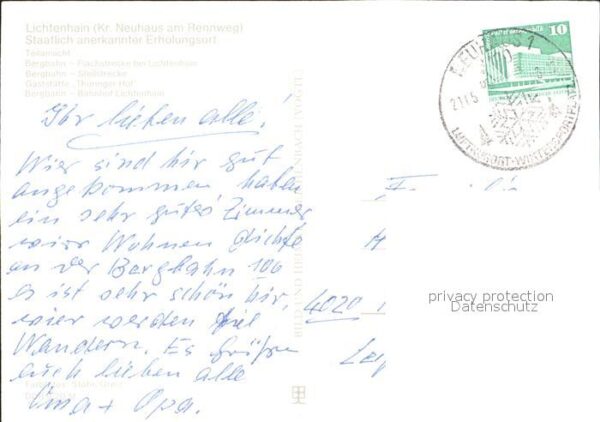 Lichtenhain (Kr. Neuhaus am Rennweg)
Staatlich anerkannter Erholungsort
Teilansicht
Bergbahn – Flachstrecke bei Lichtenhain
Bergbahn – Steilstrecke
Gaststätte "Thüringer Hof"
Bergbahn – Bahnhof Lichtenhain
Ihr lieben alle!
Wier sind hir gut
angekommen haben
ein sehr gutes Zimmer
wier Wohnen dichte
an der Bergbahn 106
es ist sehr schön hir,
wier werden viel
Wandern. Es grüßen
euch lieben alle
Oma + Opa.
10
LUFTKURORT-WINTERSPORTPLATZ
4020
privacy protection
Datenschutz